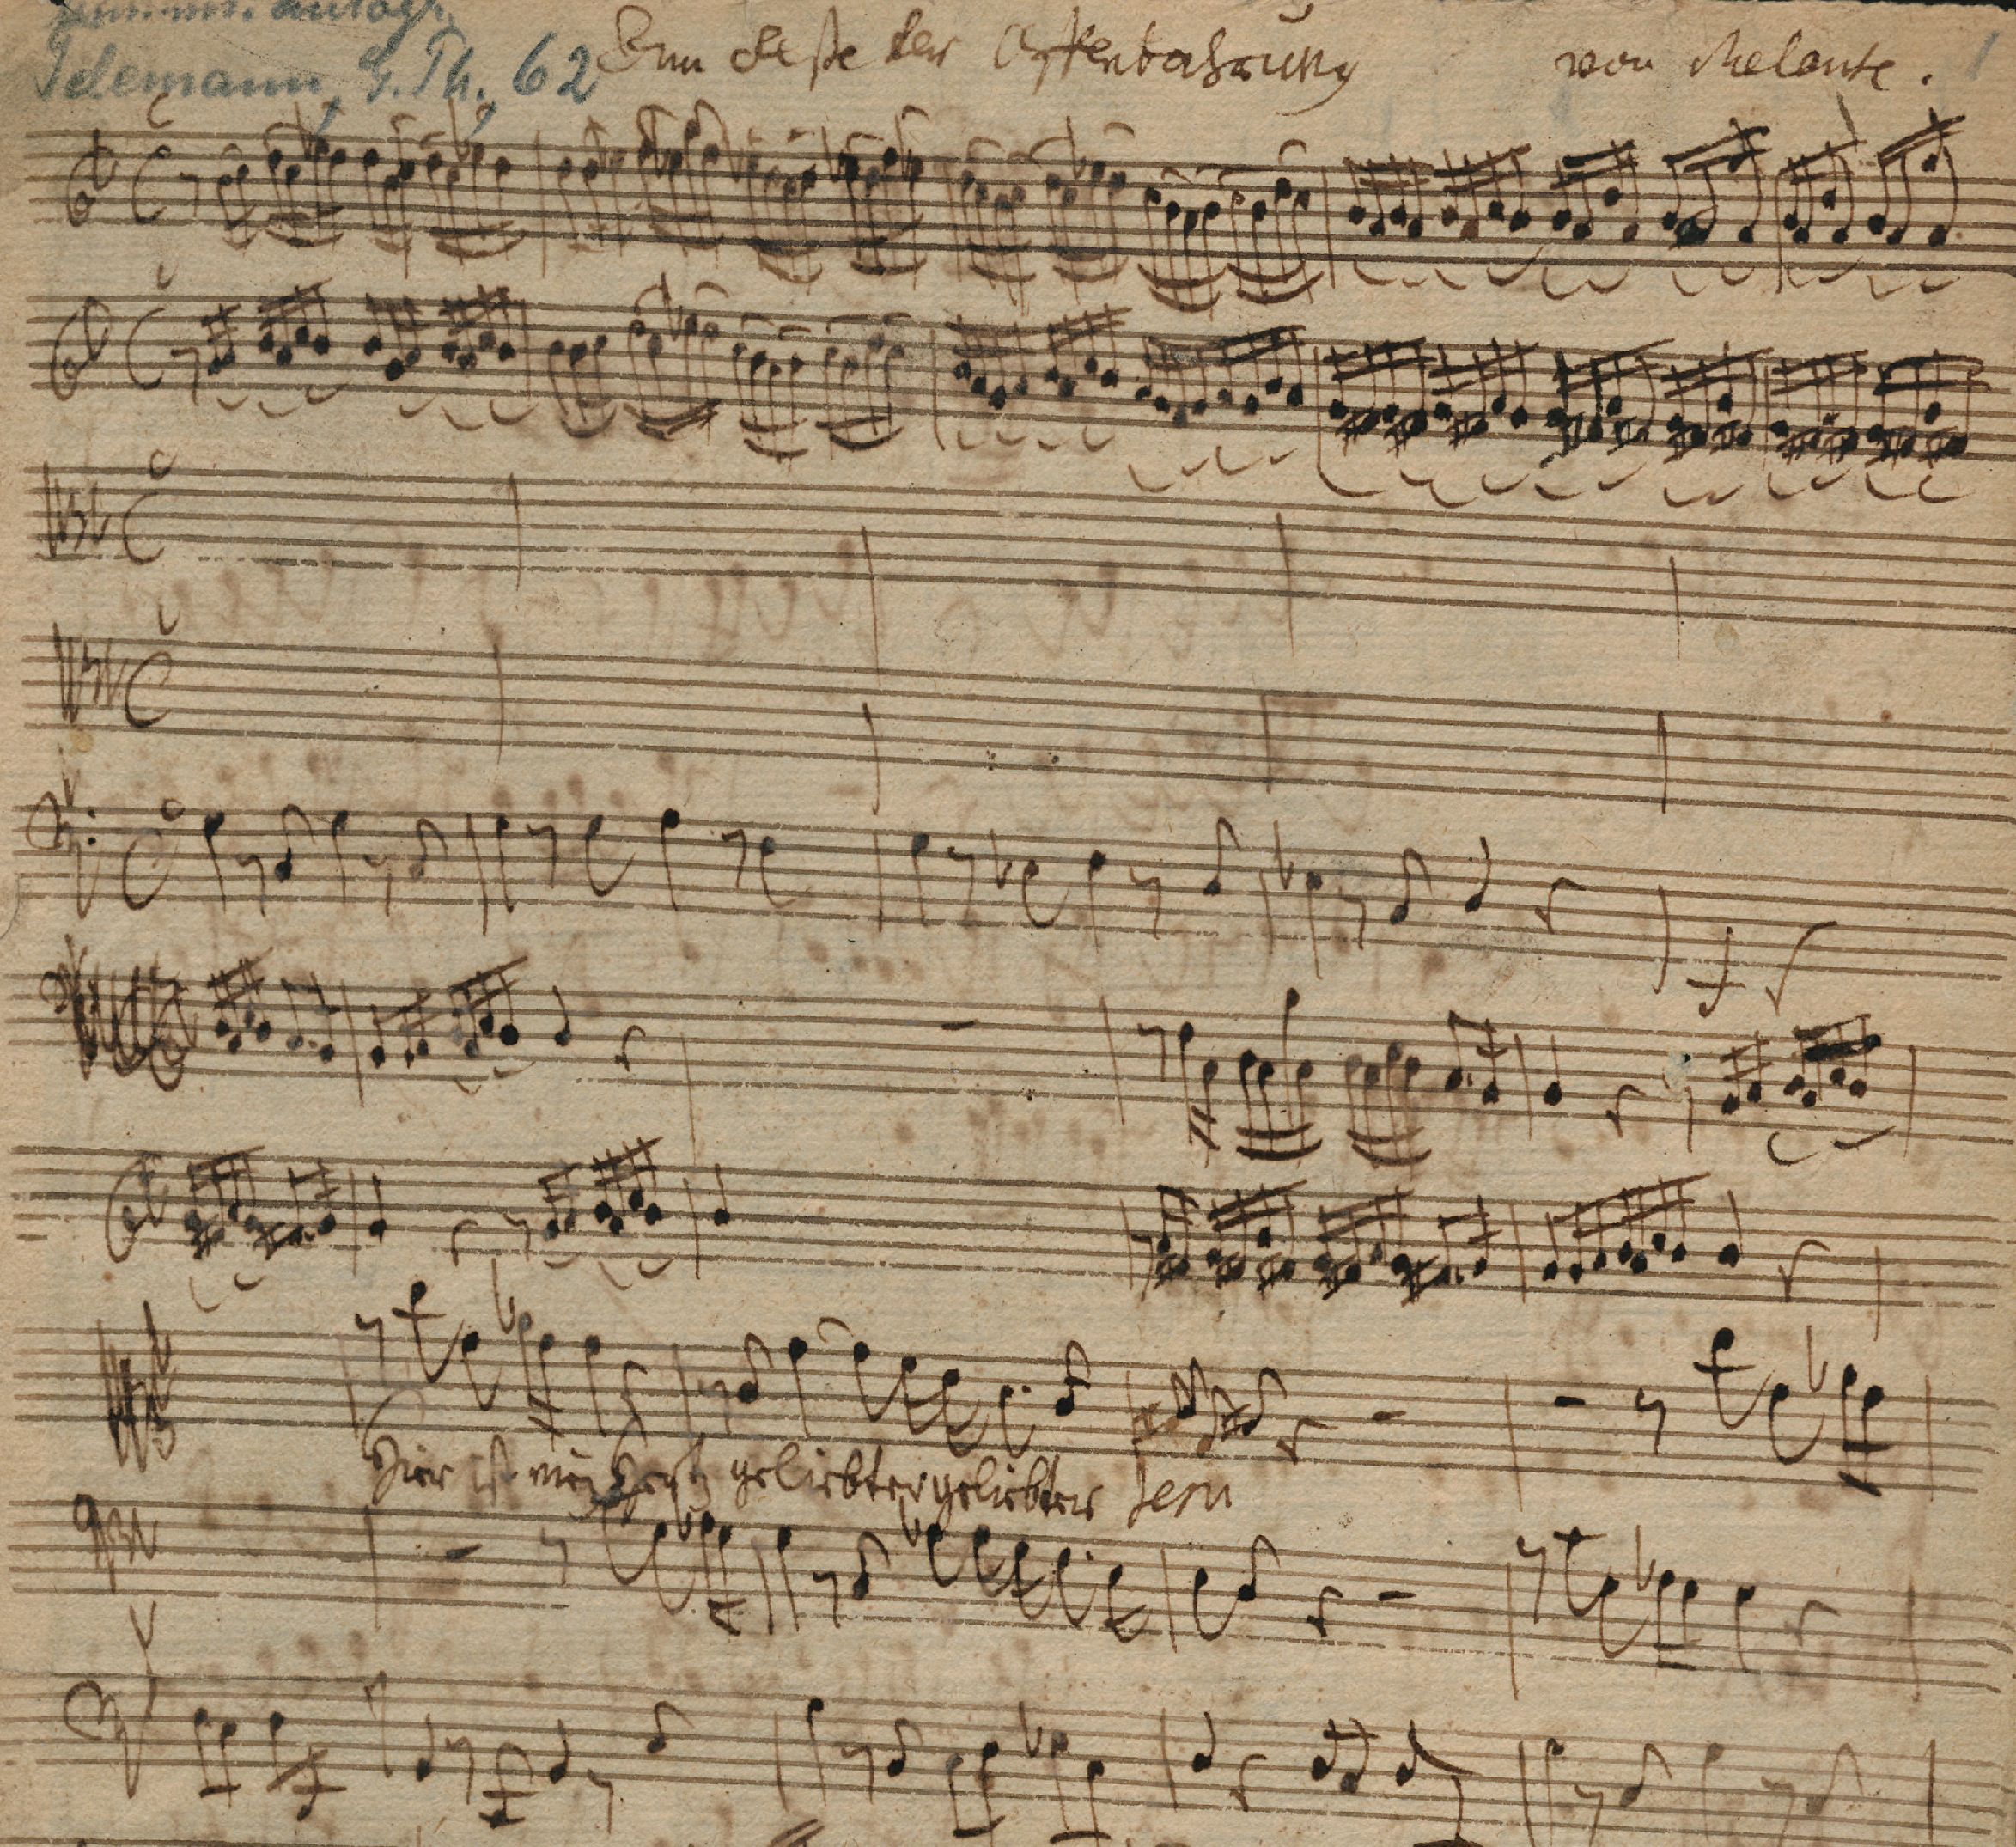 Mus. ms. autogr.
Telemann, G. Ph., 62
Am Feste der Offenbahrung von Melante. 1
Hier ist mein Hertz geliebter geliebter Jesu